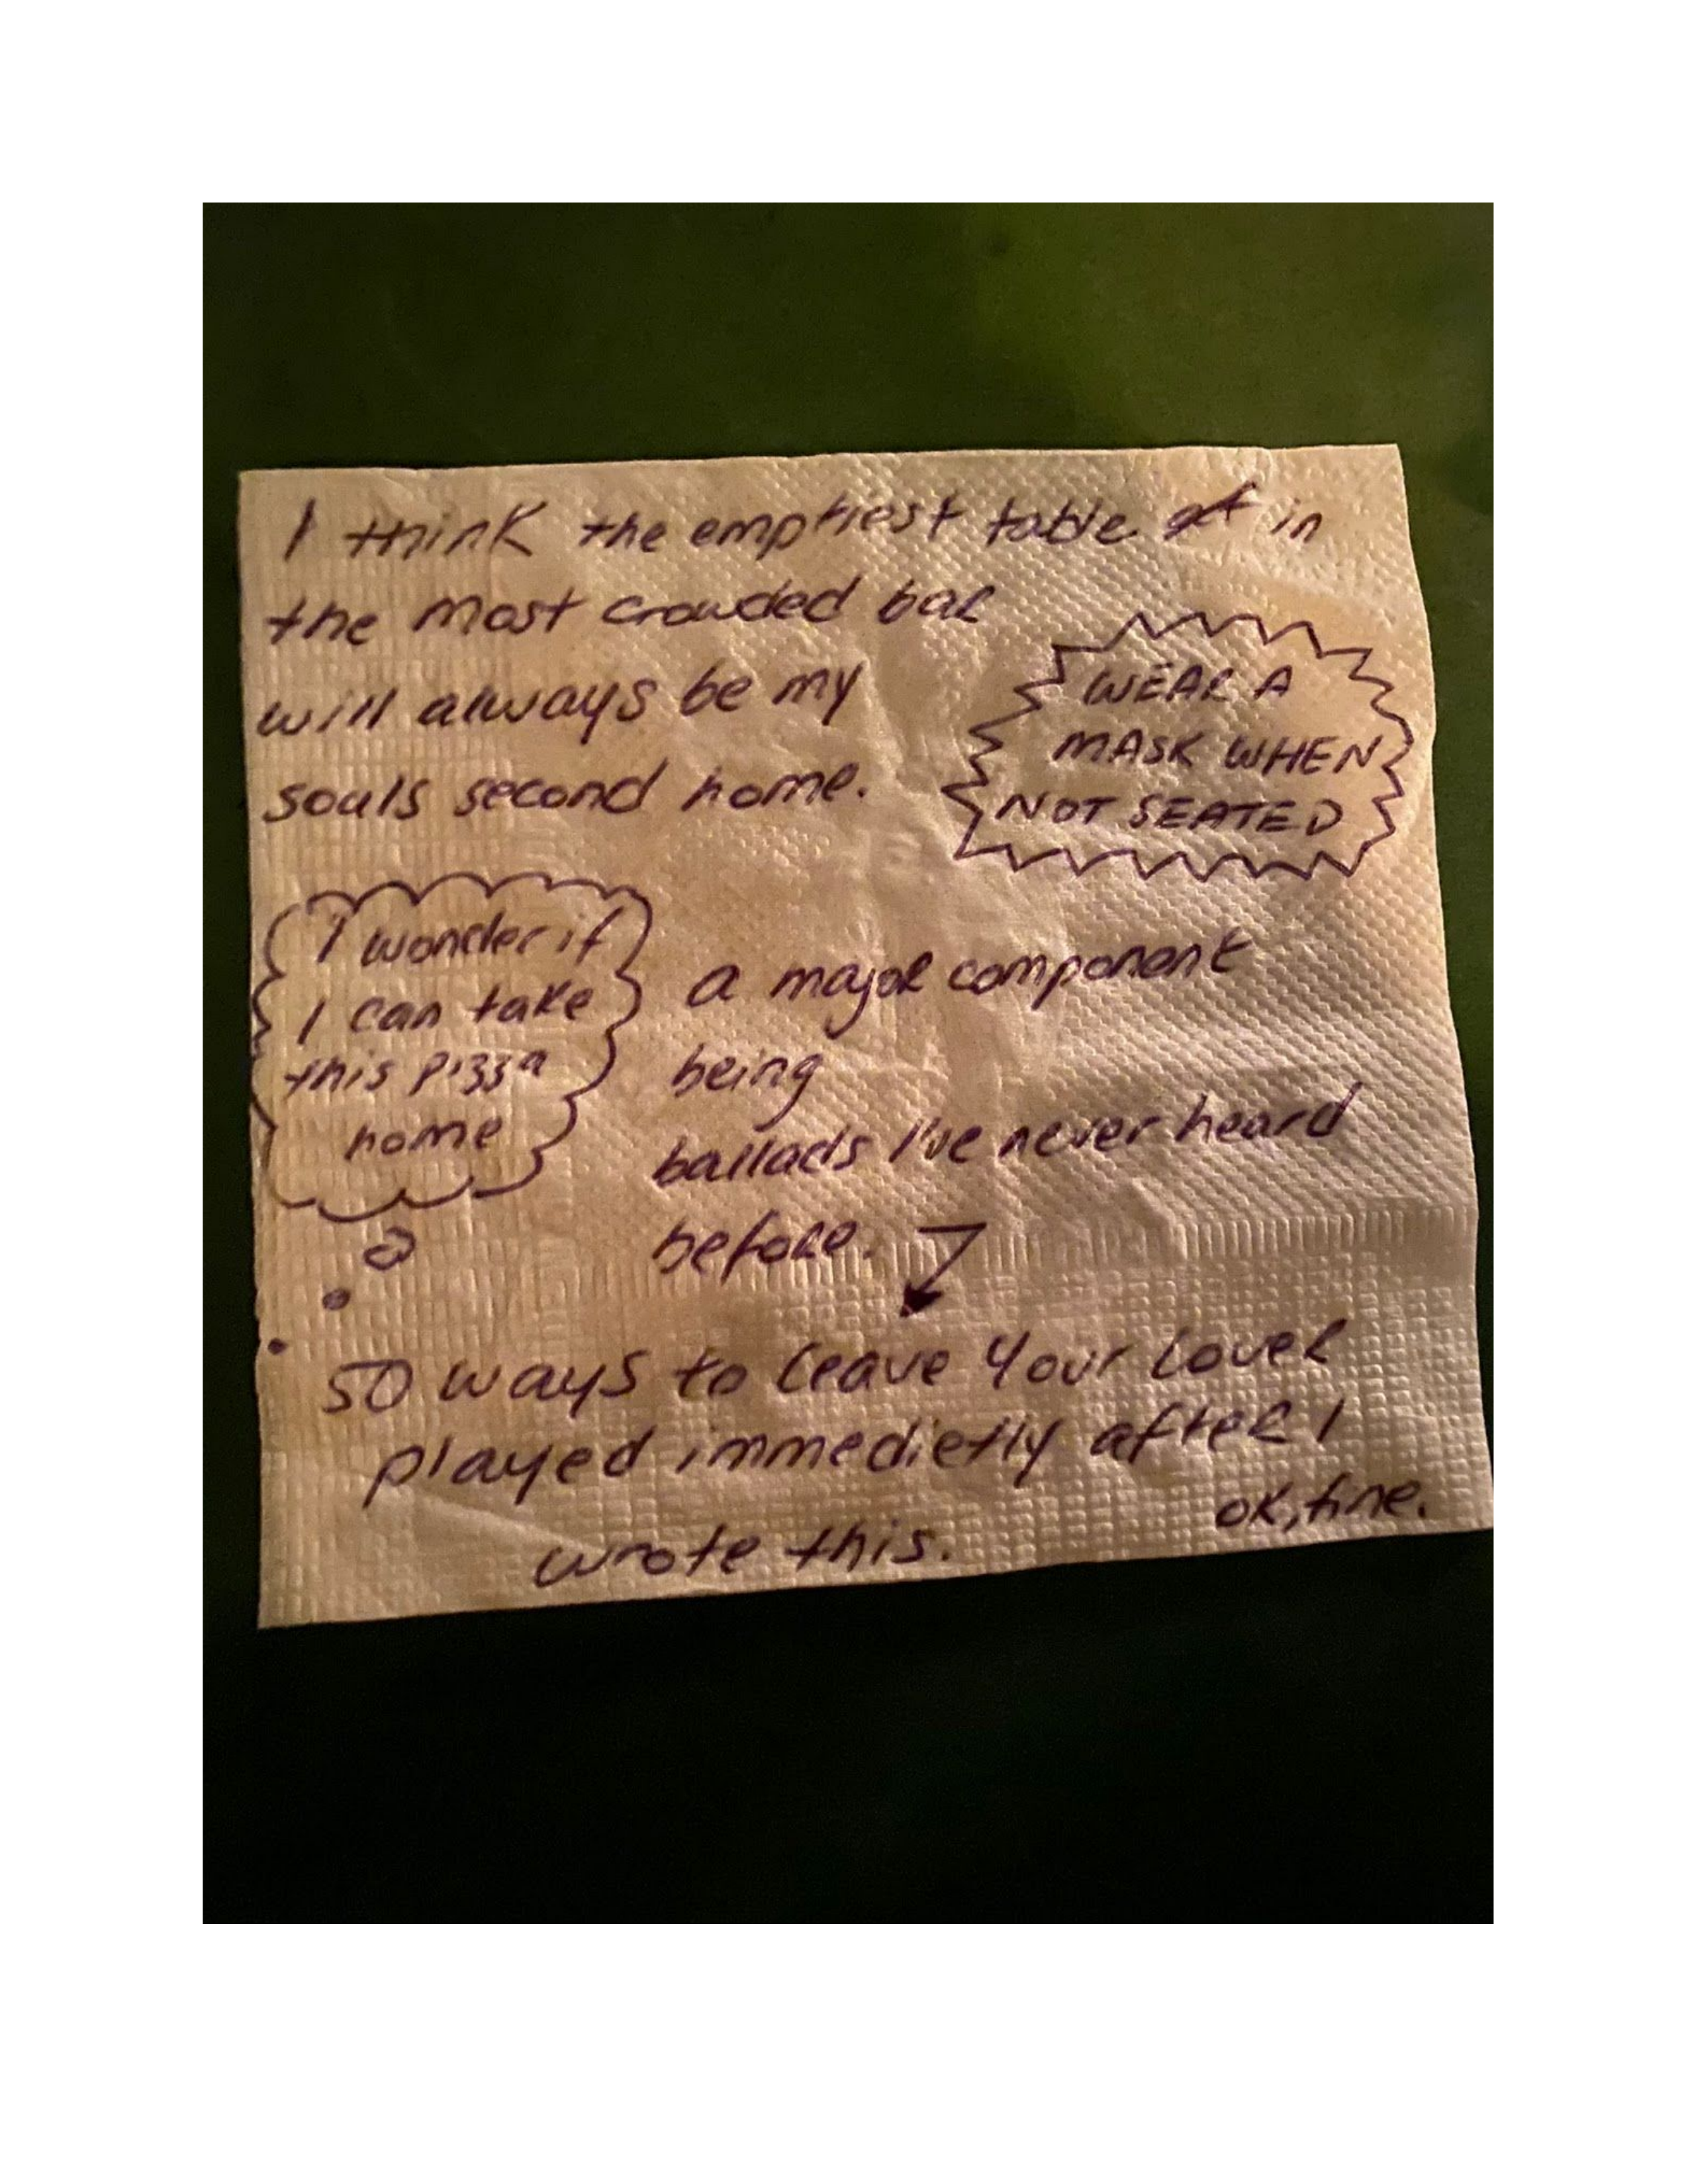 I think the emptiest table in
the most crowded bar
will always be my
souls second home.
WEAR A
MASK WHEN
NOT SEATED
I wonder if
I can take
this pizza
home
a major component
being
ballads I've never heard
before.
50 ways to leave Your Lover
played immedietly after I
wrote this.
ok, fine.